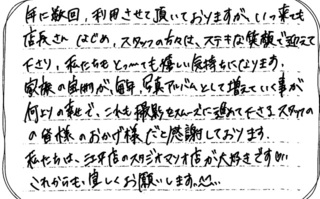 年に数回、利用させて頂いておりますが、いつ来ても
店長さんはじめ、スタッフの方々は、ステキな笑顔で迎えて
下さり、私たちもとっても嬉しい気持ちになります。
家族の宝物が、毎年、写真アルバムとして増えていく事が
何よりの幸せで、これも撮影をスムーズに進めて下さるスタッフ
の皆様のおかげ様だと感謝しております。
私たちは、江木店のスタジオマリオ店が大好きです♡♡
これからも、宜しくお願いします。